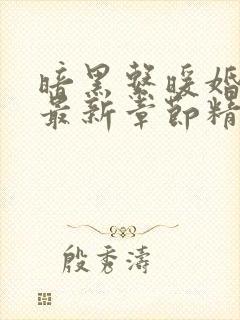 暗黑系暖婚
最新章節精
殷秀濤